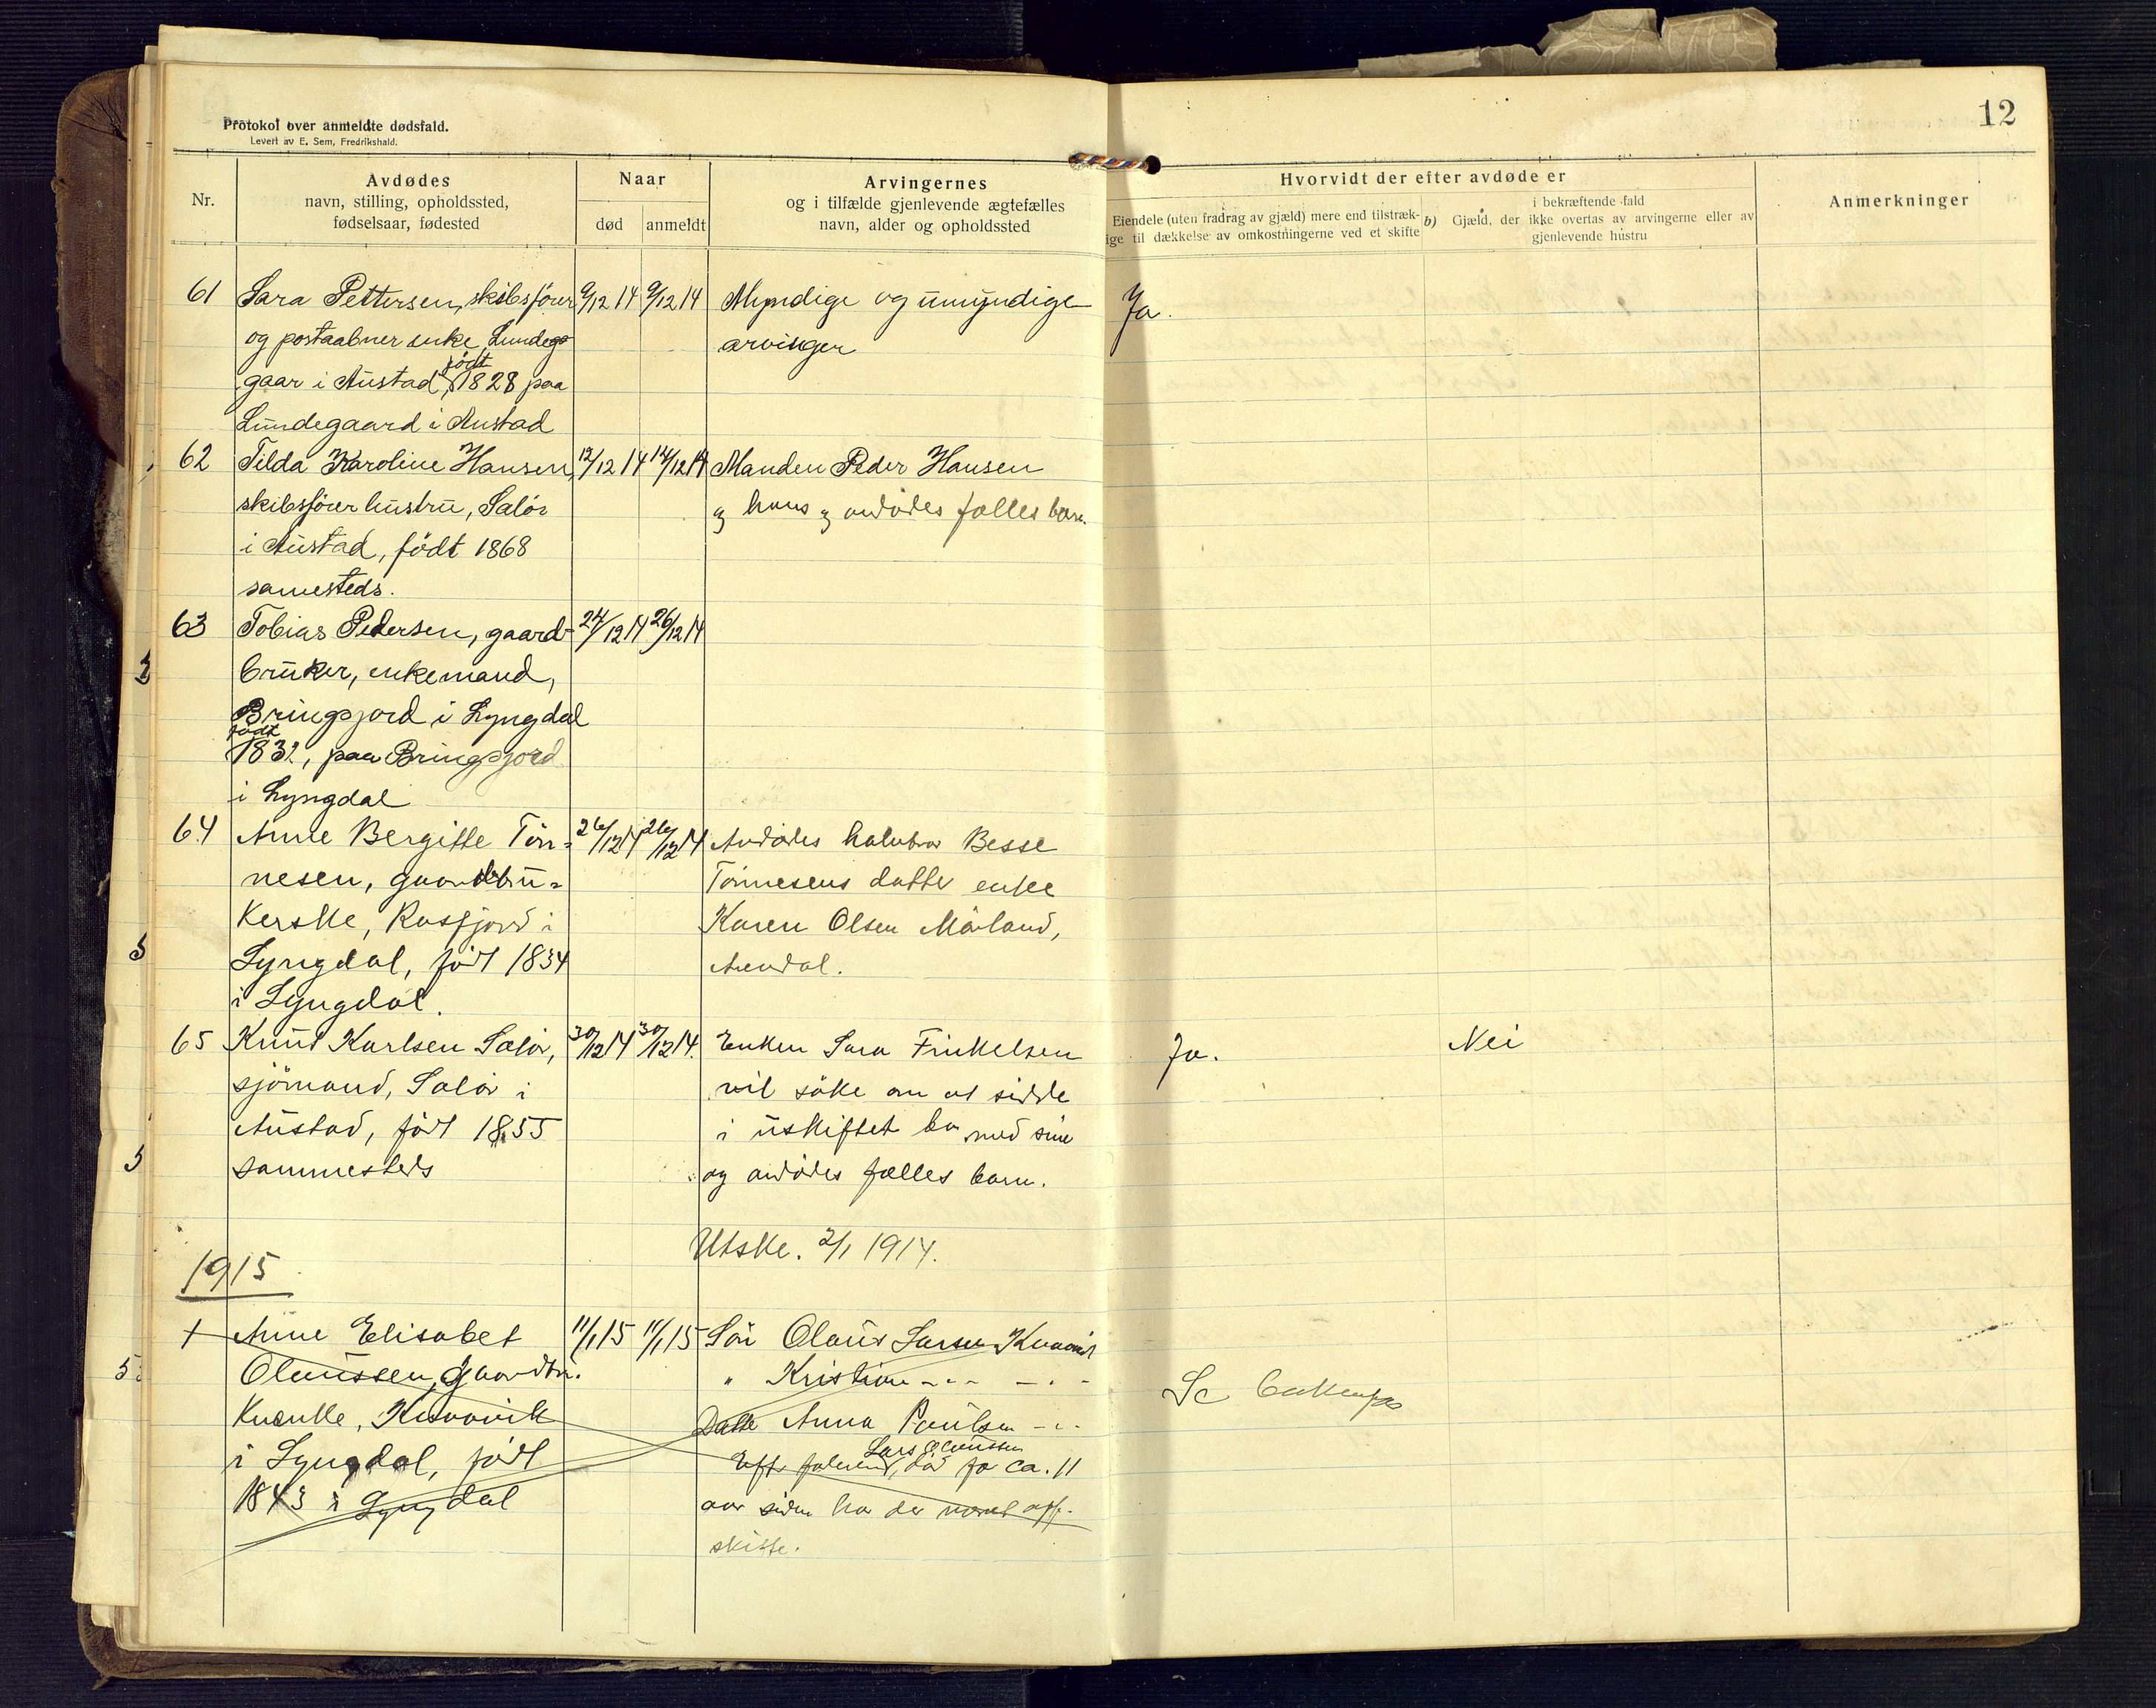 Protokol over anmeldte dødsfald.
Levert av E. Sem, Fredrikshald.
12
Nr.
Avdødes
navn, stilling, opholdssted,
fødselsaar, fødested
Naar
død
anmeldt
Arvingernes
og i tilfælde gjenlevende ægtefælles
navn, alder og opholdssted
Hvorvidt der efter avdøde er
Eiendele (uten fradrag av gjæld) mere end tilstræk-
ige til dækkelse av omkostningerne ved et skifte
b) Gjæld, der
i bekræftende fald
ikke overtas av arvingerne eller av
gjenlevende hustru
Anmerkninger
61 Sara Pettersen, skibsfører 9/12 14 9/12 14 Myndige og umyndige Ja.
og postaabner enke, Lundegaar arvinger
gaar i Austad, født 1828 paa
Lundegaard i Austad
62 Tilda Karoline Hansen, 12/12 14 14/12 14 Manden Peder Hansen
skibsfører hustru, Salør og hans og avdødes fælles barn.
i Austad, født 1868
samesteds.
63 Tobias Pedersen, gaard- 24/12 14 26/12 14
bruker, enkemand,
Bringsjord i Lyngdal
født
183?, paa Bringsjord
i Lyngdal
64 Anne Bergitte Tøn- 26/12 14 26/12 14 Avdødes halvbror Besse
nesen, gaardbru- Tønnesens datter enke
kerske, Rosfjord i Karen Olsen Måland,
Lyngdal, født 1834 Arendal.
i Lyngdal.
65 Knut Karlsen Salør, 30/12 14 30/12 14. Enken Sara Finkelsen Ja. Nei
sjømand, Salør i vil søke om at sidde
Austad, født 1855 i uskiftet bo med sine
sammesteds og avdødes fælles barn.
Utske. 2/1 1914.
1915
1 Anne Elisabet 11/1 15 11/1 15 Søn Olaus Larsen Kvavik
Olaussen, gaardbru. " Kristian -"- -"-
Kvavik Datter Anna Paulsen -"-
i Lyngdal, født Lars Olaussen
død for ca. 11
1843 i Lyngdal aar siden har der været aff.
skifte.
Se